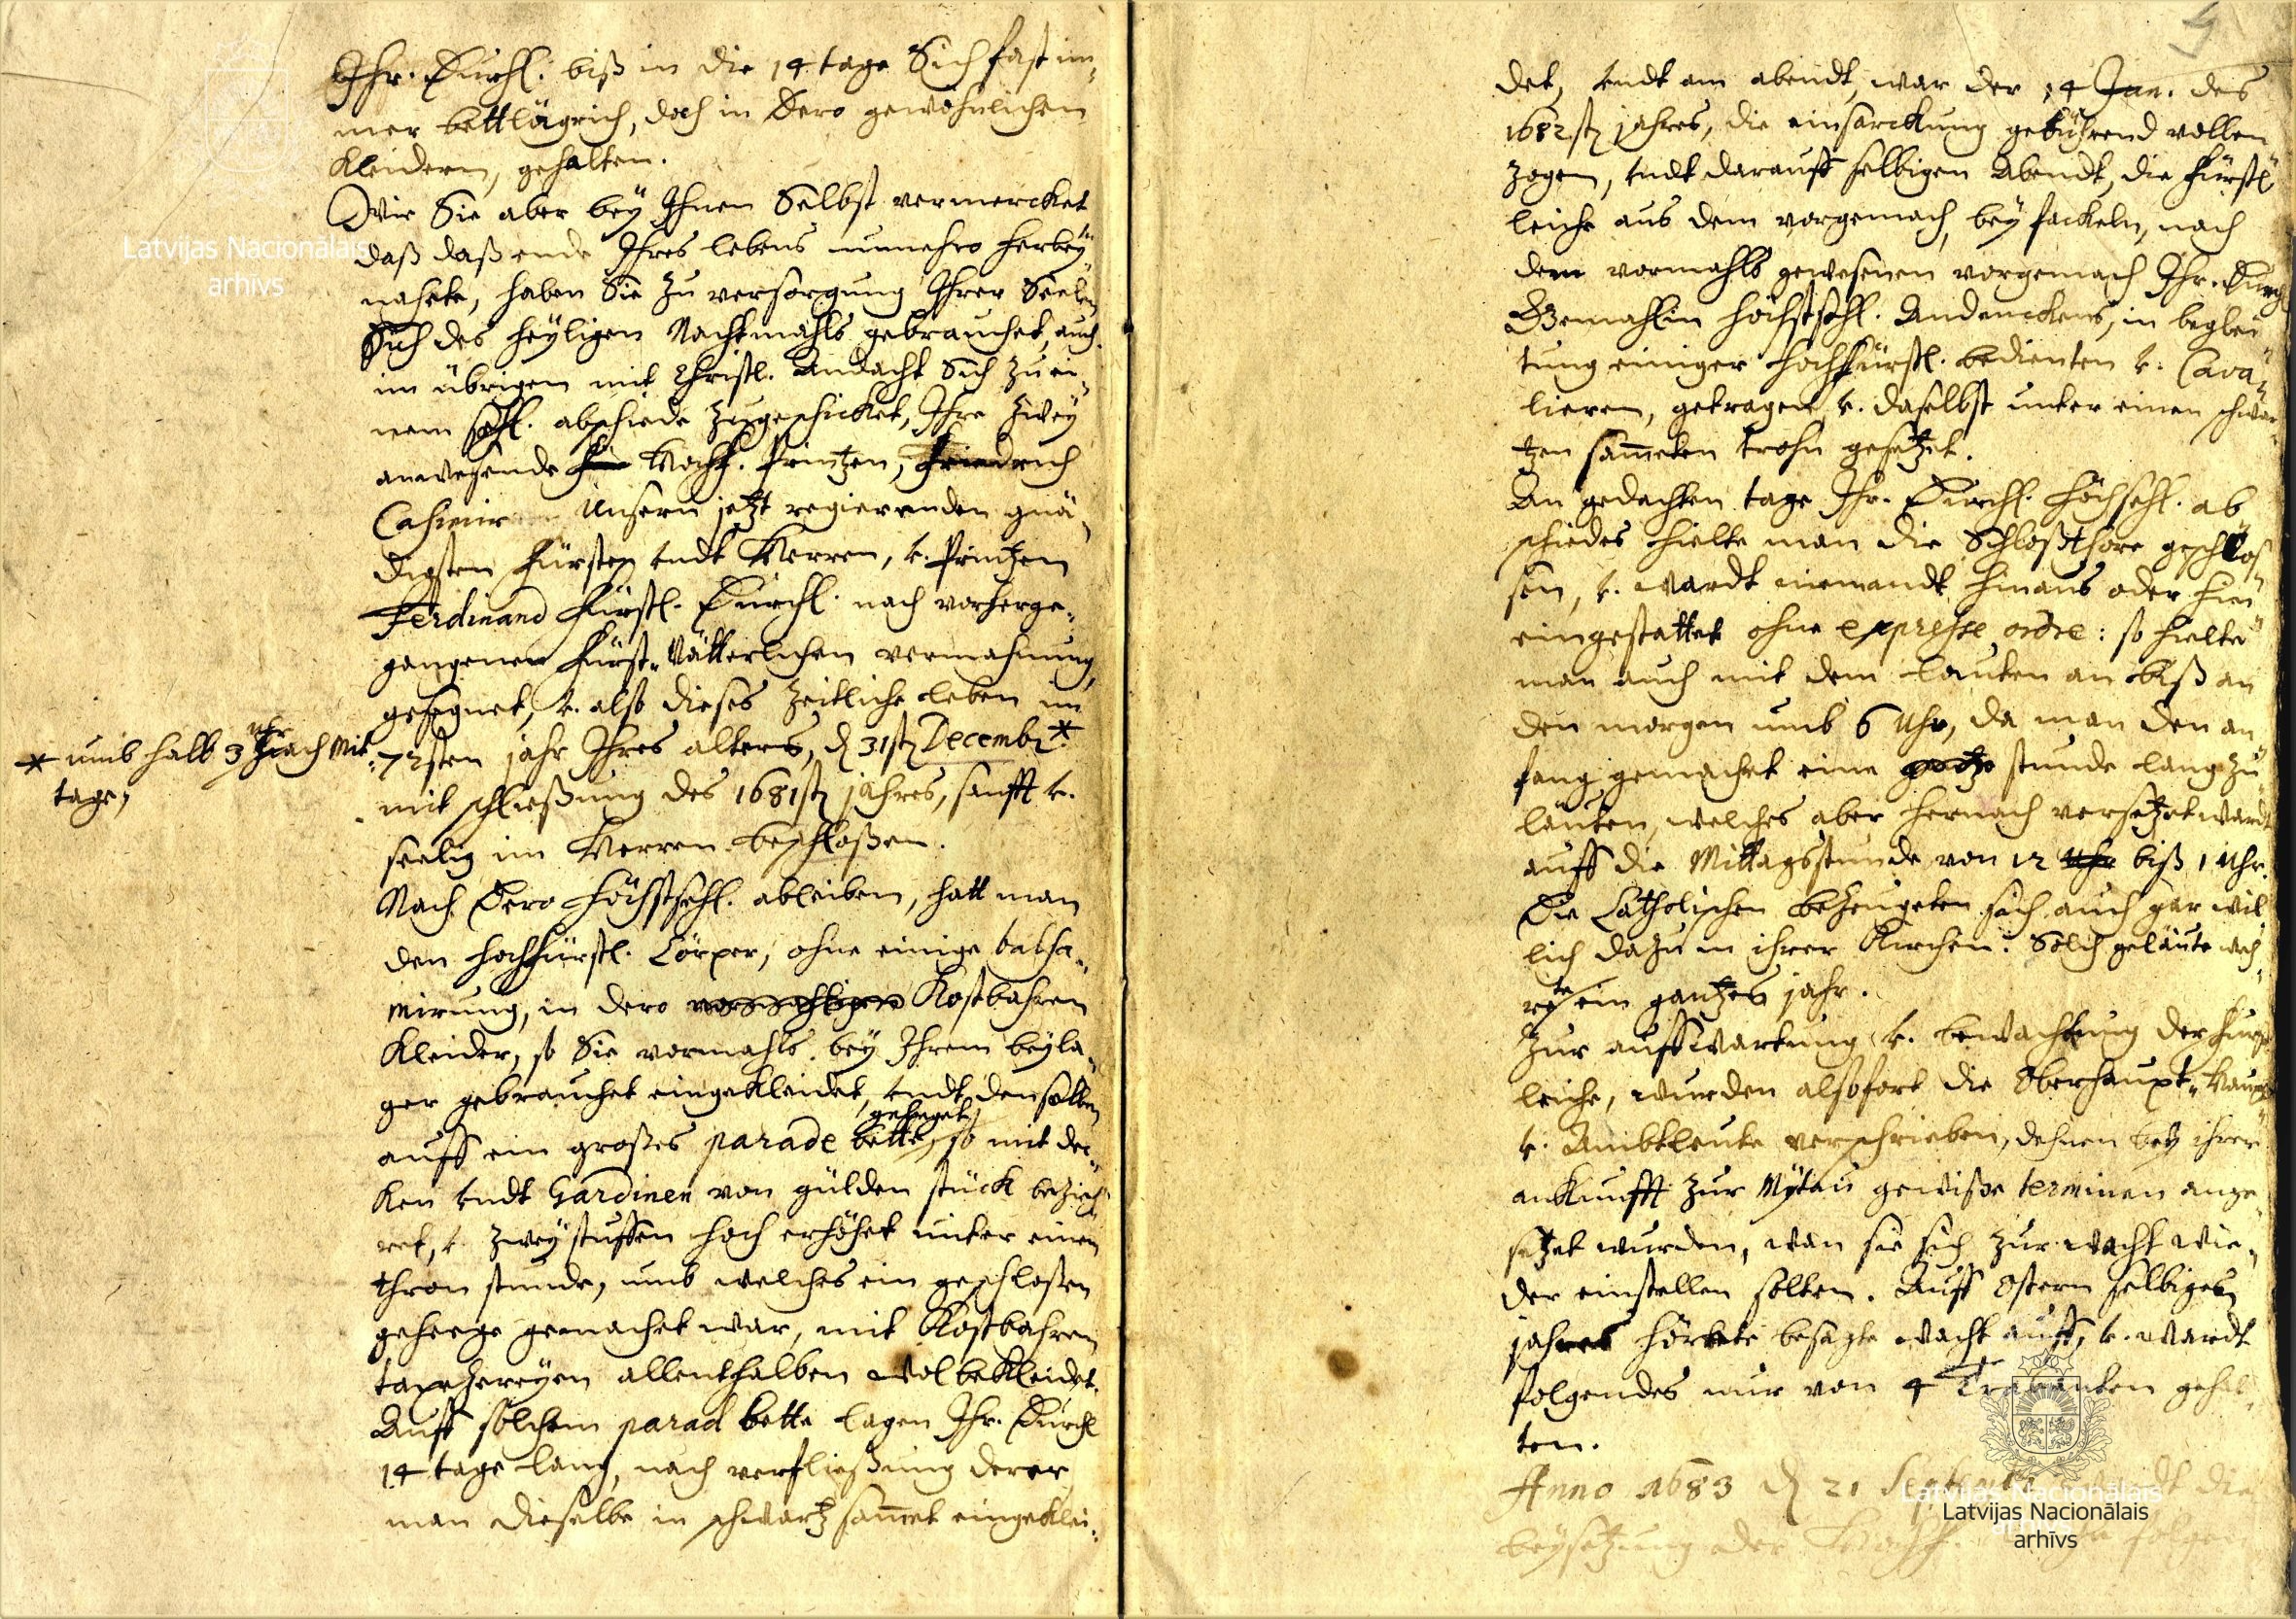 Ihr. Durchl: biß in die 14 tage Sich fast im„
mer bettlägrich, doch in Dero gewöhnlichen
Kleidern, gehalten.
Wie Sie aber bey Ihnen Selbst vermercket
daß daß ende Ihres lebens nunmehro herbey
nahete, haben Sie zu versorgung Ihrer Seelen
Sich des heyligen Nachtmahls gebrauchet, auch
im übrigen mit Christl. Andacht Sich zu ei„
nem sehl. abschiede zugeschicket, Ihre zwey
anwesende Hochf. Printzen, Friedrich
Casimir Unsern jetzt regierenden gnä„
digsten Fürsten undt Herren, v. Printzen
Ferdinand Fürstl. Durchl. nach vorherge„
gangener Fürst„Vätterlichen vermahnung,
gesegnet, v. also dieses Zeitliche leben im
72sten jahr Ihres alters, d 31st Decembr*
* umb halb 3 uhr nach Mit„
tage,
mit schließung des 1681st jahres, sanfft v.
seelig im Herren beschloßen.
Nach Dero höchstsehl. ableiben, hatt man
den hochfürstl. Cörper, ohne einige balsa„
mirung, in dero Kostbahren
Kleider, so Sie vormahls bey Ihrem beyla„
ger gebrauchet eingekleidet, undt denselben
auff ein großes parade bette, geleget, so mit dec„
ken undt Gardinen von gülden stück bezieh„
ret, v. zwey stuffen hoch erhöhet unter einen
thron stunde, umb welches ein geschloßen
gehege gemachet war, mit Kostbahren
tapezereyen allenthalben wol bekleidet.
Auff solchem parad bette lagen Ihr. Durchl
14 tage lang, nach verfließung derer
man dieselbe in schwartz sammet eingeklei„
det, undt am abendt, war der 14 Jan. des
1682st jahres, die einsarckung gebührend vollen
zogen, undt darauff selbigen Abendt, die Fürstl
leiche aus dem vorgemach, bey fackeln, nach
dem vormahls gewesenen vorgemach Ihr. Durchl
Gemahlin höchstsehl. Andenckens, in beglei
tung einiger hochfürstl. bedienten v. Cava„
lieren, getragen v. daselbst unter einen schwar„
tzen sammeten trohn gesetzet.
An gedachten tage Ihr. Durchl. höchsehl. ab
schiedes hielte man die Schloßthore geschlos
sen, v. wardt niemandt hinaus oder hin
eingestattet ohne expresse ordre: so hielte
man auch mit dem lauten an biß an
den morgen umb 6 Uhr, da man den an
fang gemachet eine stunde lang zu
läuten, welches aber hernach versetzet wardt
auff die Mittagsstunde von 12 Uhr biß 1 Uhr.
Die Catholischen bezeugeten sich auch gar wil
lich dazu in ihrer Kirchen: Solch geläute weh„
rete ein gantzes jahr.
Zur auffwartung v. bewachtung der Fürstl
leiche, wurden alsofort die Oberhaupt„ Haupt
v. Ambtleute verschrieben, dehnen bey ihrer
ankunfft zur Mytau gewiße terminen ange„
setzet wurden, wan sie sich zur wacht wie„
der einstellen solten. Auff Ostern selbigen
jahres hörete besagte wacht auff, v. wardt
folgendes nur von 4 Trabanten gehal„
ten.
Anno 1683 d 21 Septemb. wardt die
beysetzung der Hochf. folgen
Latvijas Nacionālais
arhīvs
Latvijas Nacionālais
arhīvs